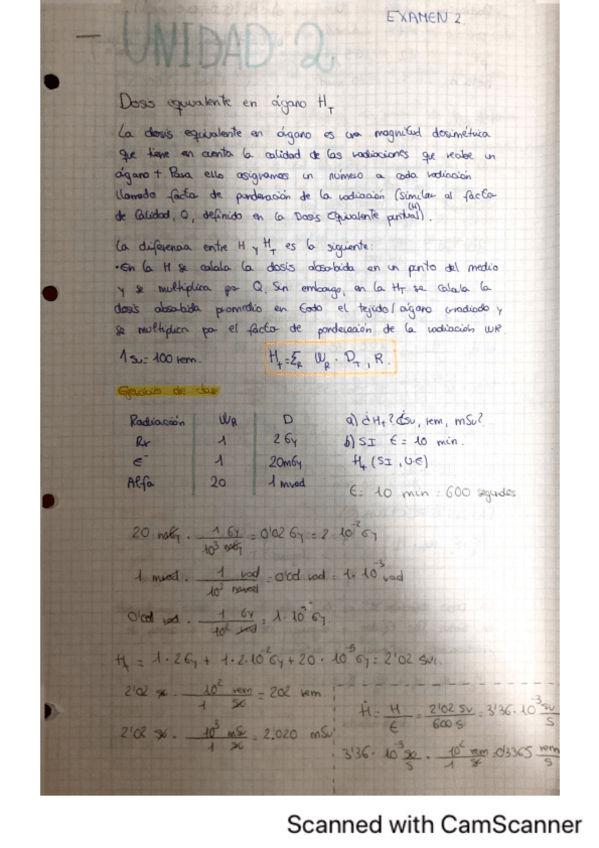 EXAMEN 2
UNIDAD 2
Dosis equivalente en órgano H_T
La dosis equivalente en órgano es una magnitud dosimétrica
que tiene en cuenta la calidad de las radiaciones que recibe un
órgano T. Para ello asignamos un número a cada radiación
llamado factor de ponderación de la radiación (similar al factor
de Calidad, Q, definido en la Dosis Equivalente puntual (H)).
La diferencia entre H y H_T es la siguiente:
· En la H se calcula la dosis absorbida en un punto del medio
y se multiplica por Q. Sin embargo, en la H_T se calcula la
dosis absorbida promedio en todo el tejido/órgano irradiado y
se multiplica por el factor de ponderación de la radiación WR.
1 Sv = 100 rem. H_T = Σ_R W_R · D_T, R.
Ejercicios de clase
Radiación W_R D a) ¿H_T? ¿Sv, rem, mSv?
Rx 1 2 Gy b) SI t = 10 min.
e⁻ 1 20mGy Ḣ_T (SI, UE)
Alfa 20 1 mrad t = 10 min = 600 segundos
20 mGy · 1 Gy / 10³ mGy = 0'02 Gy = 2 · 10⁻² Gy
1 mrad · 1 rad / 10³ mrad = 0'001 rad = 1 · 10⁻³ rad
0'001 rad · 1 Gy / 10² rad = 1 · 10⁻⁵ Gy
H_T = 1 · 2Gy + 1 · 2 · 10⁻² Gy + 20 · 10⁻⁵ Gy = 2'02 Sv.
2'02 Sv · 10² rem / 1 Sv = 202 rem
Ḣ = H / t = 2'02 Sv / 600 s = 3'36 · 10⁻³ Sv/s
2'02 Sv · 10³ mSv / 1 Sv = 2.020 mSv
3'36 · 10⁻³ Sv/s · 10² rem / 1 Sv = 0'3365 rem/s
Scanned with CamScanner